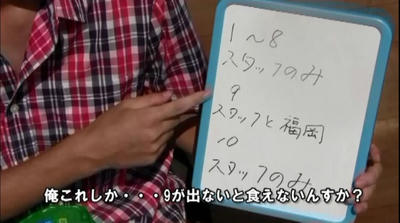 1～8
スタッフのみ
9
スタッフと福岡
10
スタッフのみ
俺これしか・・・9が出ないと食えないんすか？